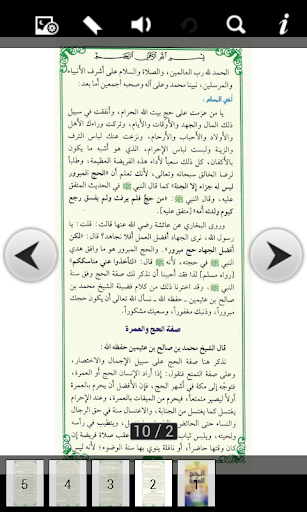 بِسْمِ اللَّهِ الرَّحْمَٰنِ الرَّحِيمِ
الحمد لله رب العالمين، والصلاة والسلام على أشرف الأنبياء
والمرسلين، نبينا محمد وعلى آله وصحبه أجمعين أما بعد:
أخي المسلم ..
يا من عزمت على حج بيت الله الحرام، وأنفقت في سبيل
ذلك المال والجهد والأوقات والأيام، وتركت وراءك الأهل
والأولاد والأحباب والأرحام، ونزعت عنك لباس الترف
والزينة ولبست لباس الإحرام، الذي هو أشبه ما يكون
بالأكفان، كل ذلك سعياً لأداء هذه الفريضة العظيمة، وطلباً
لرضا الخالق سبحانه وتعالى، لأنك تعلم أن «الحج المبرور
ليس له جزاء إلا الجنة» كما قال النبي ﷺ في الحديث المتفق
عليه، وقال النبي ﷺ: «من حج فلم يرفث ولم يفسق رجع
كيوم ولدته أمه» [متفق عليه].
وروى البخاري عن عائشة رضي الله عنها قالت: قلت: يا
رسول الله، نرى الجهاد أفضل العمل أفلا نجاهد؟ قال: «لكن
أفضل الجهاد حج مبرور». والحج المبرور هو ما وافق هدي
النبي ﷺ في حجته، لأنه ﷺ قال: «لتأخذوا عني مناسككم»
[رواه مسلم] لذا فقد أحببنا أن نذكر لك صفة الحج وفق سنة
النبي ﷺ، وقد اخترنا ذلك من كلام فضيلة الشيخ محمد بن
صالح بن عثيمين - حفظه الله - نسأل الله تعالى أن يكون حجك
مبروراً، وذنبك مغفوراً، وسعيك مشكوراً.
صفة الحج والعمرة
قال الشيخ محمد بن صالح بن عثيمين حفظه الله:
نذكر هنا صفة الحج على سبيل الإجمال والاختصار،
وعلى صفة التمتع فنقول: إذا أراد الإنسان الحج أو العمرة،
فتوجه إلى مكة في أشهر الحج، فإن الأفضل أن يحرم بالعمرة
أولاً ليصير متمتعاً، فيحرم من الميقات بالعمرة، وعند الإحرام
يغتسل كما يغتسل من الجنابة، والاغتسال سنة في حق الرجال
والنساء حتى الحائض
10 / 2
5
4
3
2
1